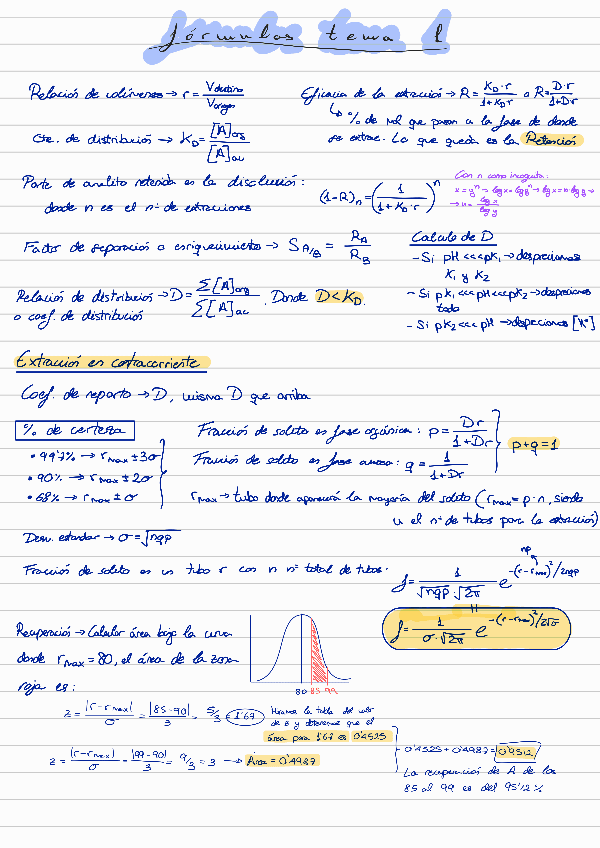 fórmulas tema 1
Relación de volúmenes → r = Vdestino / Vorigen
Eficacia de la extracción → R = KD·r / 1+KD·r o R = D·r / 1+D·r
↳ % de mol que pasan a la fase de donde
se extrae. Lo que queda es la Retención
Cte. de distribución → KD = [A]org / [A]ac
Parte de analito retenida en la disolución:
donde n es el nº de extracciones
(1-R)n = (1 / 1+KD·r)^n
Con n como incógnita:
x = y^n → log x = log y^n → log x = n log y →
→ n = log x / log y
Factor de separación o enriquecimiento → S A/B = RA / RB
Calculo de D
- Si pH <<< pK1 → despreciamos
K1 y K2
- Si pK1 <<< pH <<< pK2 → despreciamos
todo
- Si pK2 <<< pH → despreciamos [H+]
Relación de distribución → D = Σ[A]org / Σ[A]ac . Donde D < KD.
o coef. de distribución
Extracción en contracorriente
Coef. de reparto → D, misma D que arriba
% de certeza
• 99'7% → rmax ± 3σ
• 90% → rmax ± 2σ
• 68% → rmax ± σ
Fracción de soluto en fase orgánica: p = Dr / 1+Dr
Fracción de soluto en fase acuosa: q = 1 / 1+Dr
p+q=1
rmax → tubo donde aparecerá la mayoría del soluto (rmax = p·n, siendo
n el nº de tubos para la extracción)
Desv. estandar → σ = √nqp
Fracción de soluto en un tubo r con n nº total de tubos:
f = 1 / √nqp √2π e^-(r-rmax)²/2nqp
np
f = 1 / σ·√2π e^-(r-rmax)²/2√σ
Recuperación → Calcular área bajo la curva
donde rmax = 80, el área de la zona
roja es:
80 85 99
z = |r-rmax| / σ = |85-90| / 3 = 5/3 = 1'67
Miramos la tabla del valor
de z y obtenemos que el
área para 1'67 es 0'4525
z = |r-rmax| / σ = |99-90| / 3 = 9/3 = 3 → Área = 0'4987
0'4525 + 0'4987 = 0'9512
La recuperación de A de los
85 al 99 es del 95'12 %